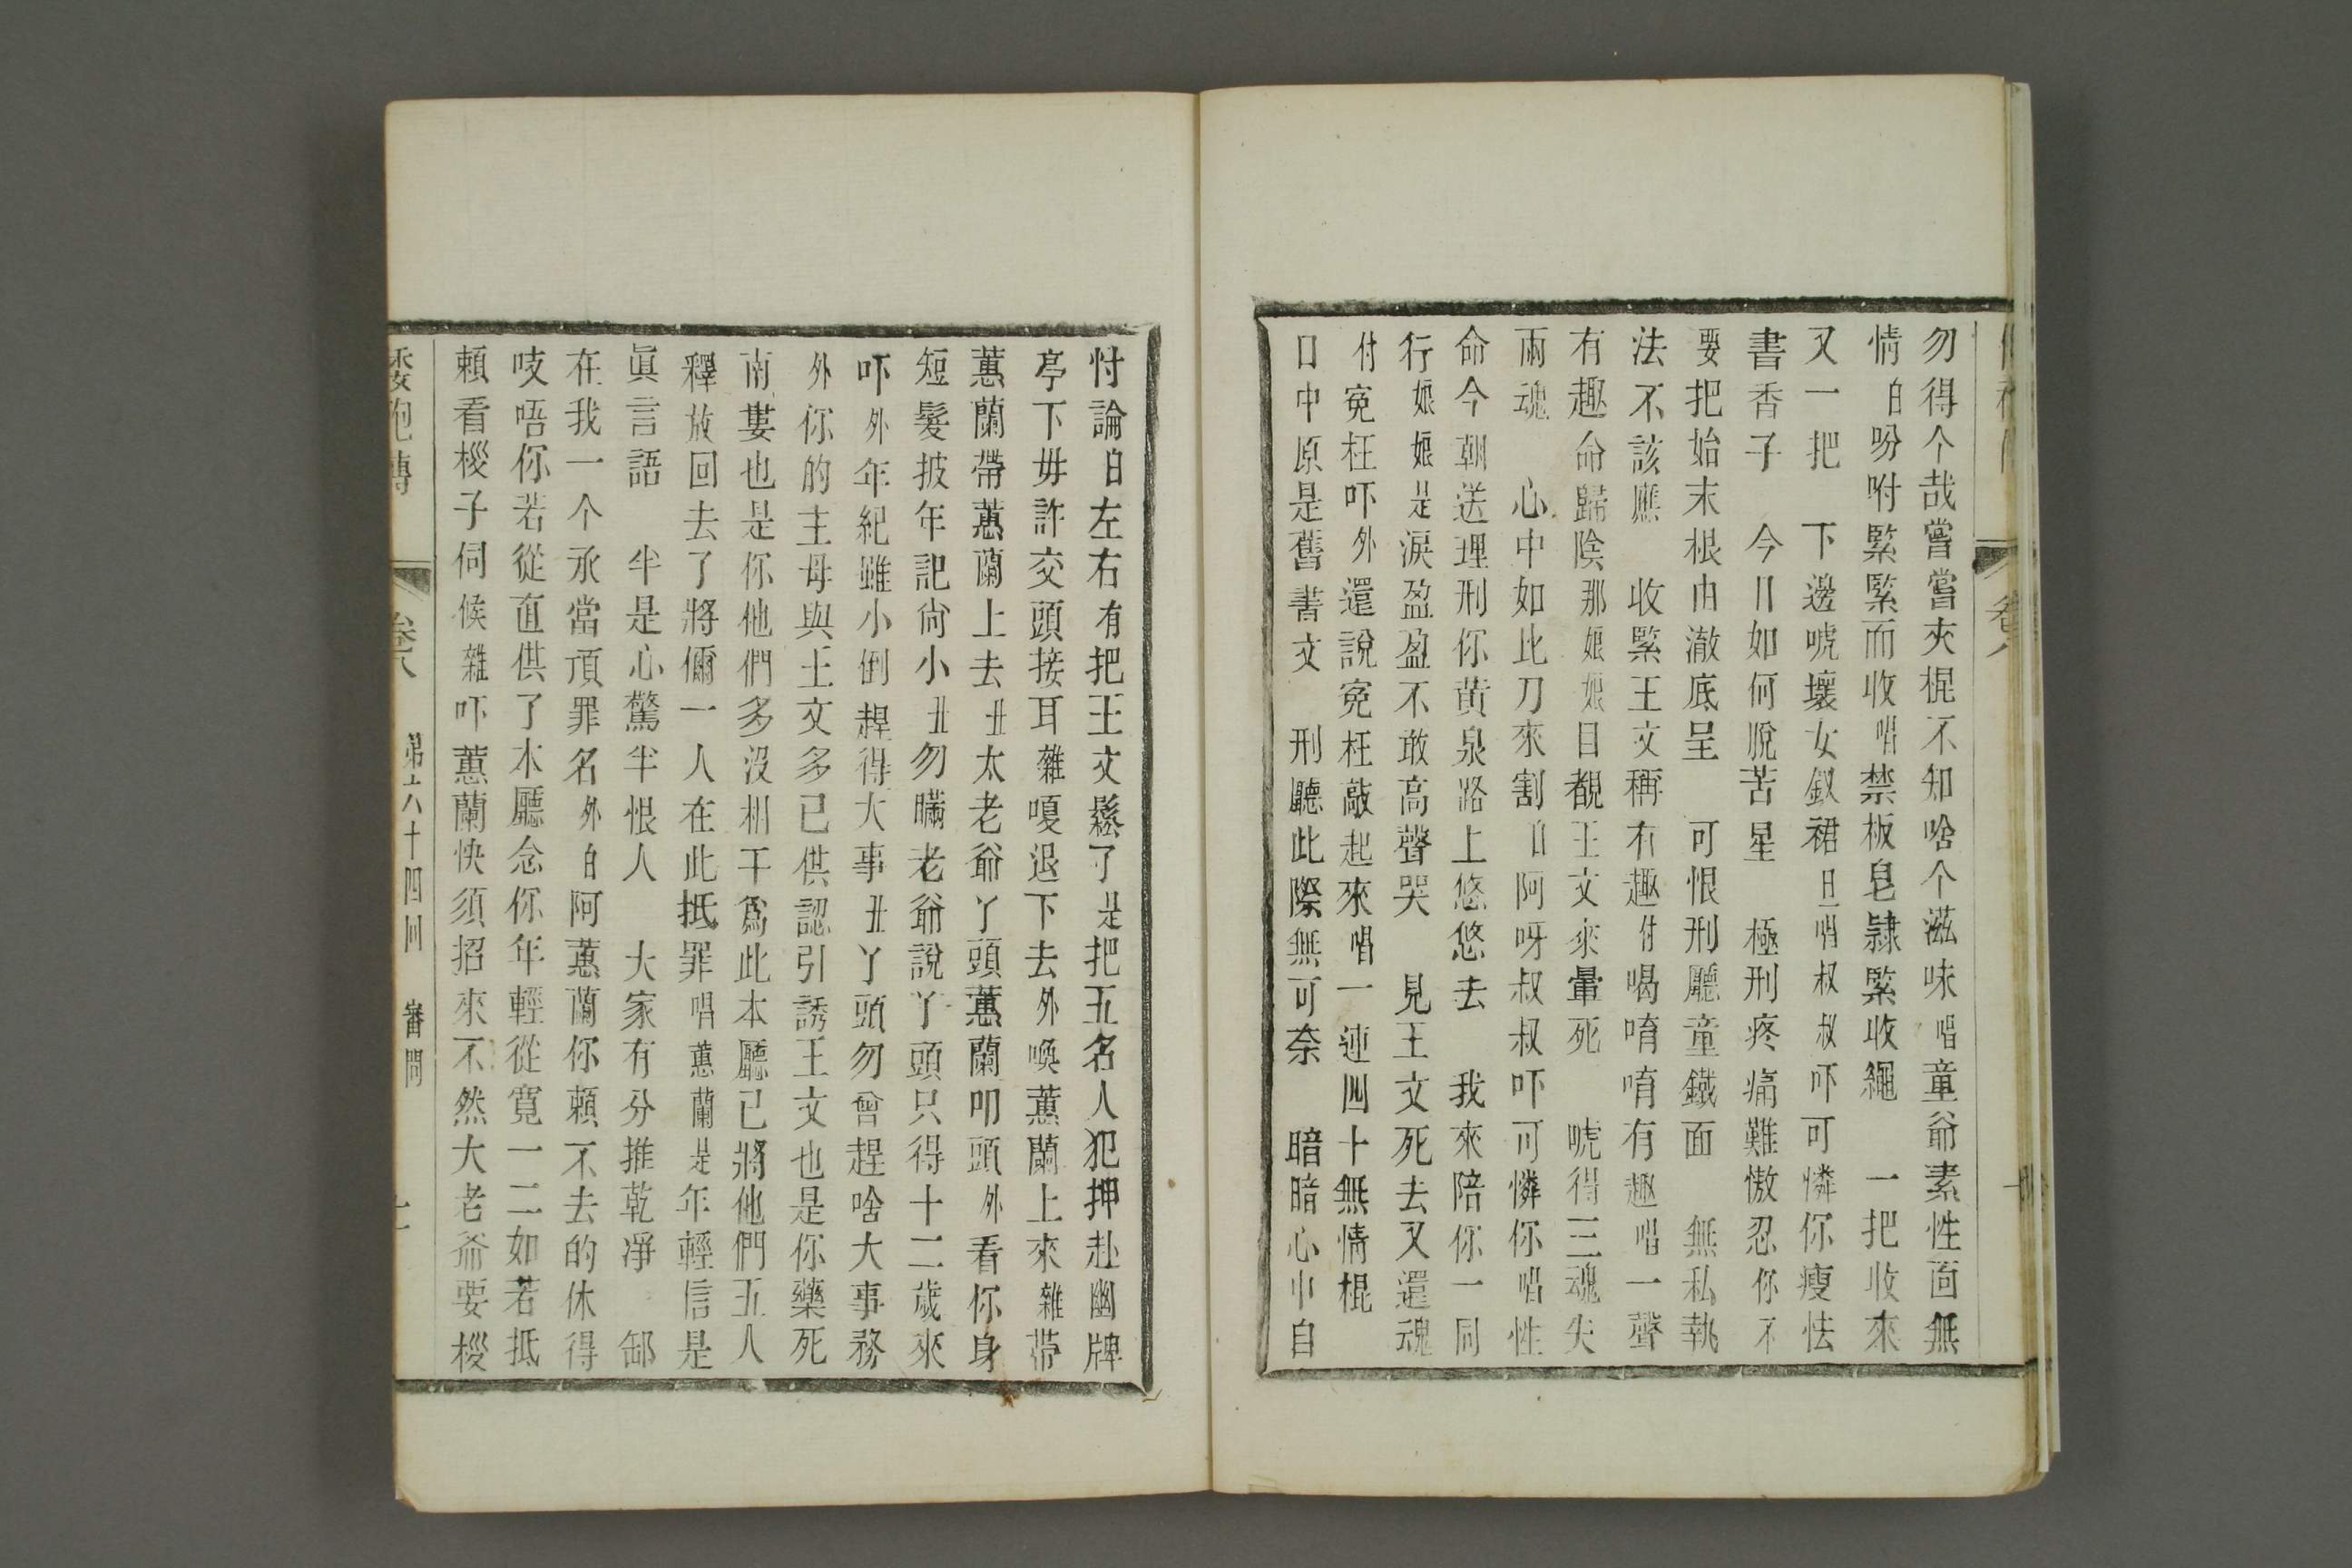 勿得个哉嘗嘗夾棍不知啥个滋味唱童爺素性面無
情白吩咐緊緊而收唱禁板皂隸緊收繩　一把收來
又一把　下邊唬壞女釵裙旦唱叔叔吓可憐你瘦怯
書香子　今日如何脫苦星　極刑疼痛難憿忍你不
要把始末根由澈底呈　可恨刑廳童鐵面　無私執
法不該應　收緊王文稱有趣付喝唷唷有趣唱一聲
有趣命歸陰那娘娘目覩王文來暈死　唬得三魂失
兩魂　心中如比刀來割白阿呀叔叔吓可憐你唱性
命今朝送理刑你黃泉路上悠悠去　我來陪你一同
行娘娘是淚盈盈不敢高聲哭　見王文死去又還魂
付寃枉吓外還說寃枉敲起來唱一連四十無情棍
口中原是舊書文　刑廳此際無可奈　暗暗心中自
忖論白左右有把王文鬆了是把五名人犯押赴幽牌
亭下毋許交頭接耳雜嗄退下去外喚蕙蘭上來雜帶
蕙蘭帶蕙蘭上去丑太老爺丫頭蕙蘭叩頭外看你身
短髮披年記尙小丑勿瞞老爺說丫頭只得十二歲來
吓外年紀雖小倒趕得大事丑丫頭勿曾趕啥大事務
外你的主母與王文多已供認引誘王文也是你藥死
南婁也是你他們多沒相干爲此本廳已將他們五人
釋放回去了將儞一人在此抵罪唱蕙蘭是年輕信是
眞言語　半是心驚半恨人　大家有分推乾凈　缷
在我一个承當頂罪名外白阿蕙蘭你賴不去的休得
吱唔你若從直供了本廳念你年輕從寬一二如若抵
賴看椶子伺候雜吓蕙蘭快須招來不然大老爺要椶
卷八　第六十四回　審問